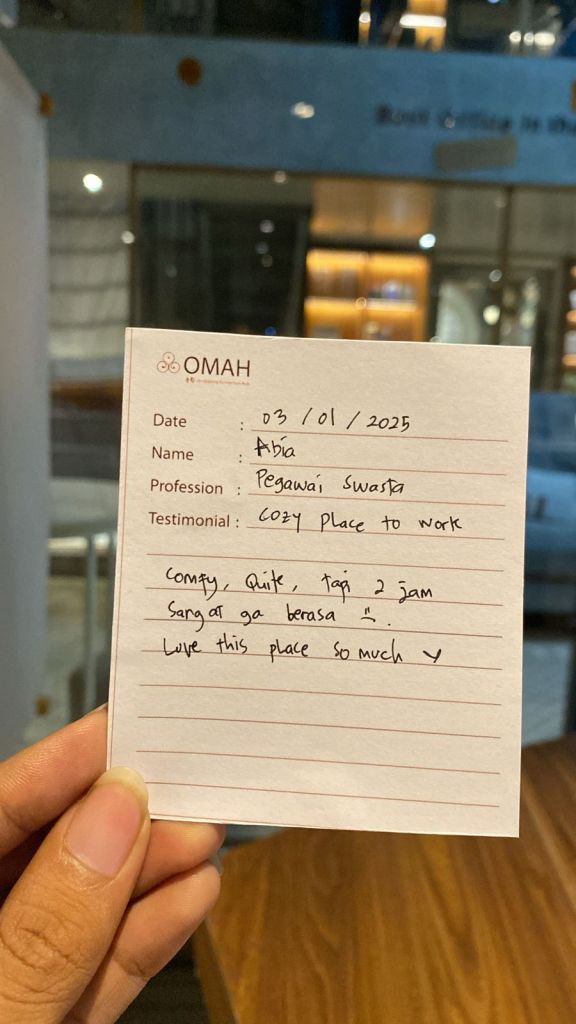 Best Office in the
OMAH
Date : 03 / 01 / 2025
Name : Abia
Profession : Pegawai Swasta
Testimonial : Cozy Place to work
Comfy, Quite, tapi 2 jam
Sangat ga berasa :(.
Love this place so much